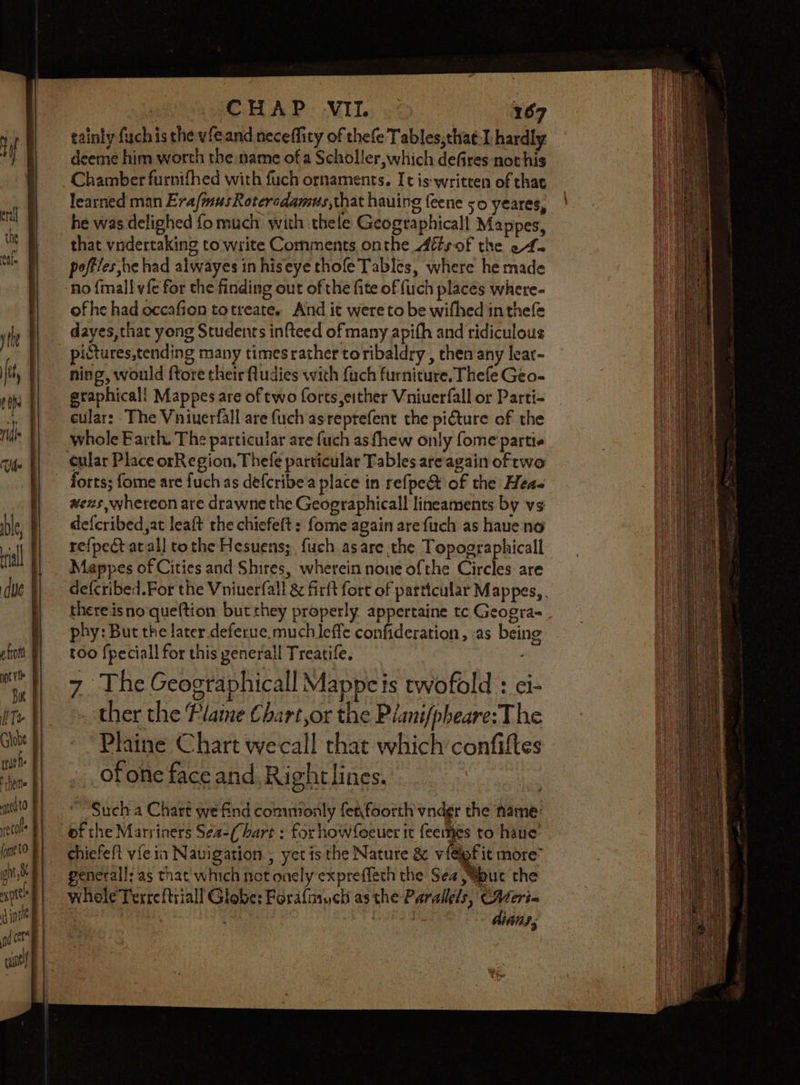 CHAP. VII. 167
tainly such is the vse and necessity of these Tables, that I hardly
deeme him worth the name of a Scholler, which desires not his
Chamber furnished with such ornaments. It is written of that
learned man Erasmus Roterodamus, that hauing seene 50 yeares,
he was delighed so much with these Geographicall Mappes,
that vndertaking to write Comments on the Acts of the A-
postles, he had alwayes in his eye those Tables, where he made
no small vse for the finding out of the site of such places where-
of he had occasion to treate. And it were to be wished in these
dayes, that yong Students insteed of many apish and ridiculous
pictures, tending many times rather to ribaldry, then any lear-
ning, would store their studies with such furniture. These Geo-
graphicall Mappes are of two sorts, either Vniuersall or Parti-
cular: The Vniuersall are such as represent the picture of the
whole Earth. The particular are such as shew only some parti-
cular Place or Region. These particular Tables are again of two
sorts; some are such as describe a place in respect of the Hea-
uens, whereon are drawne the Geographicall lineaments by vs
described, at least the chiefest: some again are such as haue no
respect at all to the Heauens; such as are the Topographicall
Mappes of Cities and Shires, wherein none of the Circles are
described. For the Vniuersall & first sort of particular Mappes,
there is no question but they properly appertaine to Geogra-
phy: But the later deserue much lesse consideration, as being
too speciall for this generall Treatise.
7 The Geographicall Mappe is twofold: ei-
ther the Plaine Chart, or the Planispheare: The
Plaine Chart we call that which consistes
of one face and Right lines.
Such a Chart we find commonly set foorth vnder the name
of the Marriners Sea-Chart: for howsoeuer it seemes to haue
chiefest vse in Nauigation, yet is the Nature & vse of it more
generall: as that which not onely expresseth the Sea, but the
whole Terrestriall Globe: Forasmuch as the Parallels, Meri-
dians,